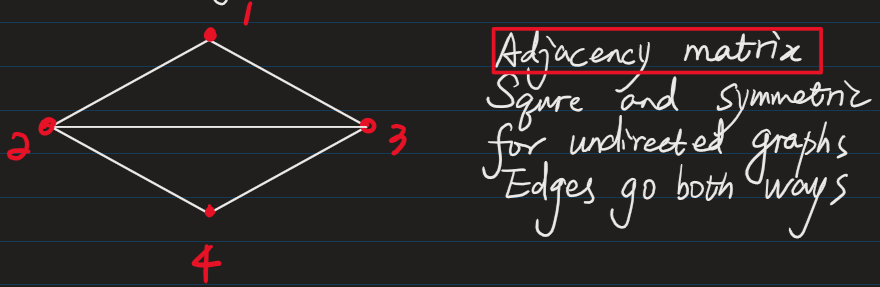 1
Adjacency matrix
Squre and symmetric
2
3
for undirected graphs
Edges go both ways
4